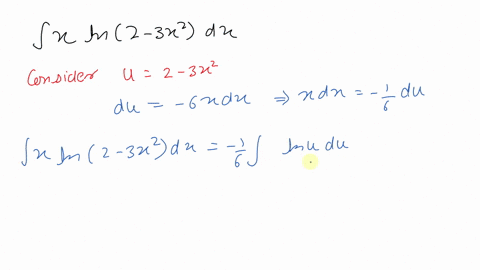 ∫x ln(2-3x²) dx
Consider u = 2-3x²
du = -6xdx ⇒ xdx = -1/6 du
∫x ln(2-3x²)dx = -1/6 ∫ lnu du